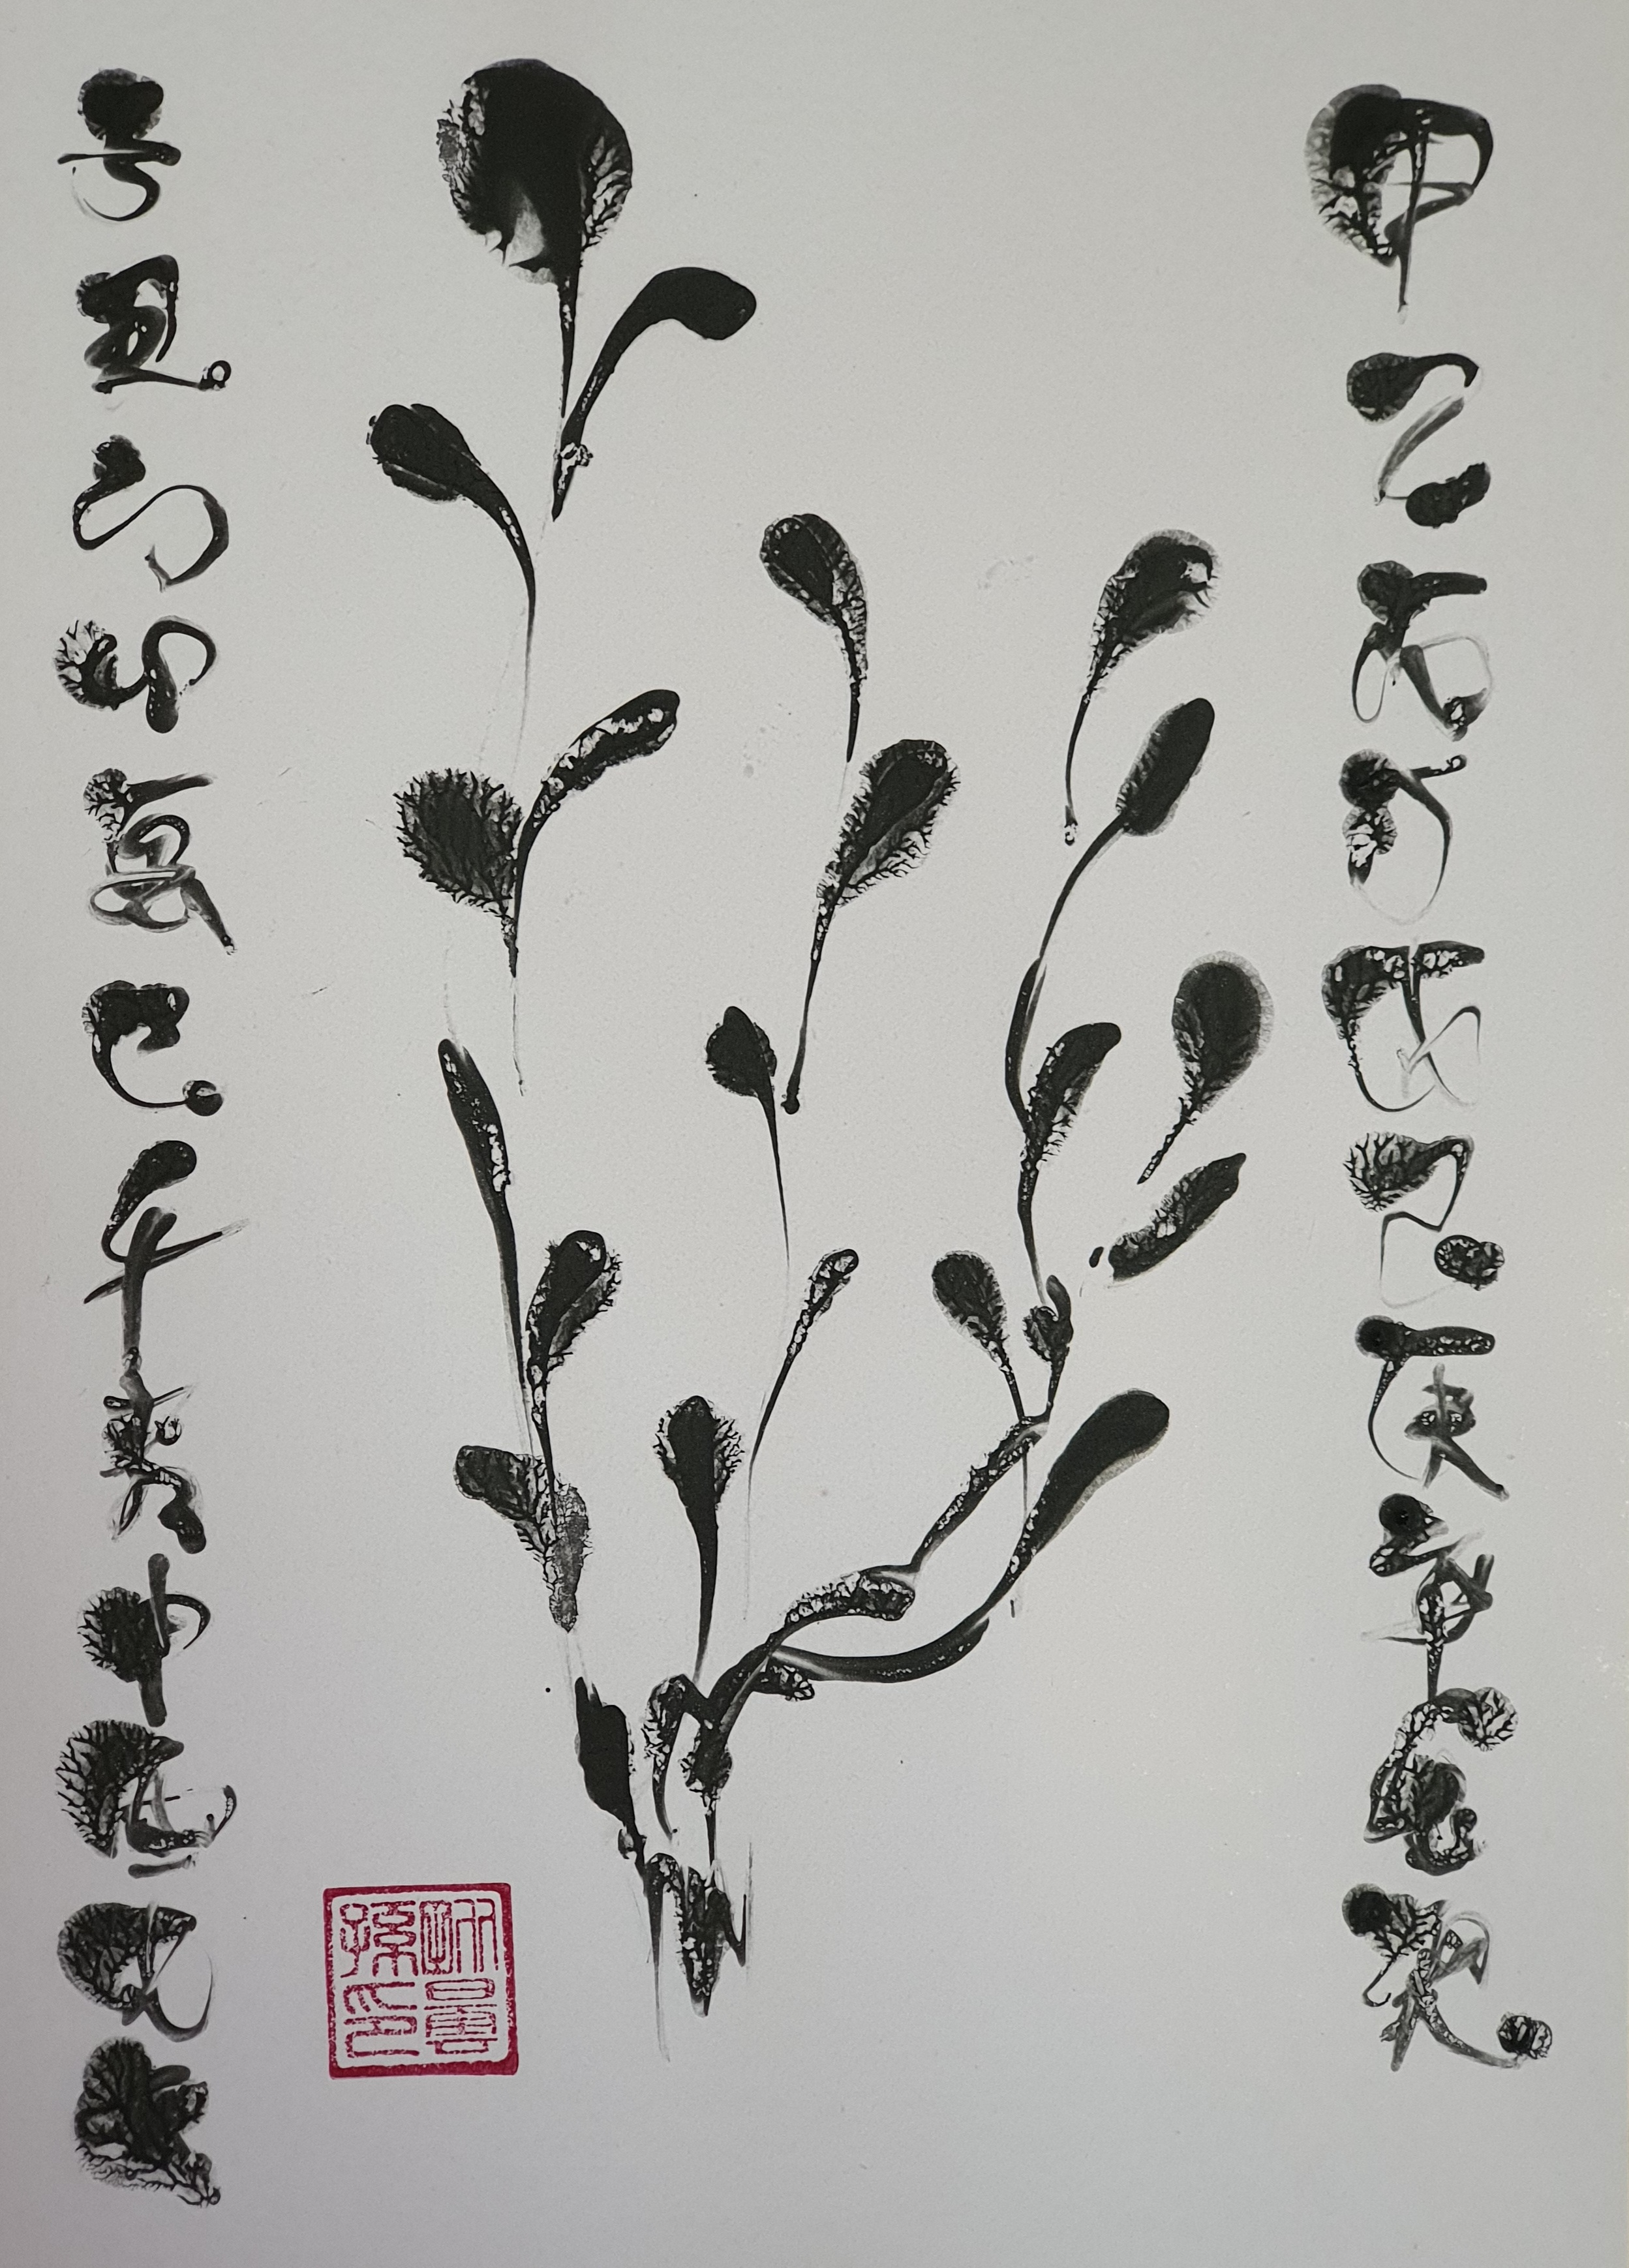 甲乙丙丁戊己庚辛壬癸
子丑寅卯辰巳午未申酉戌亥
孫印